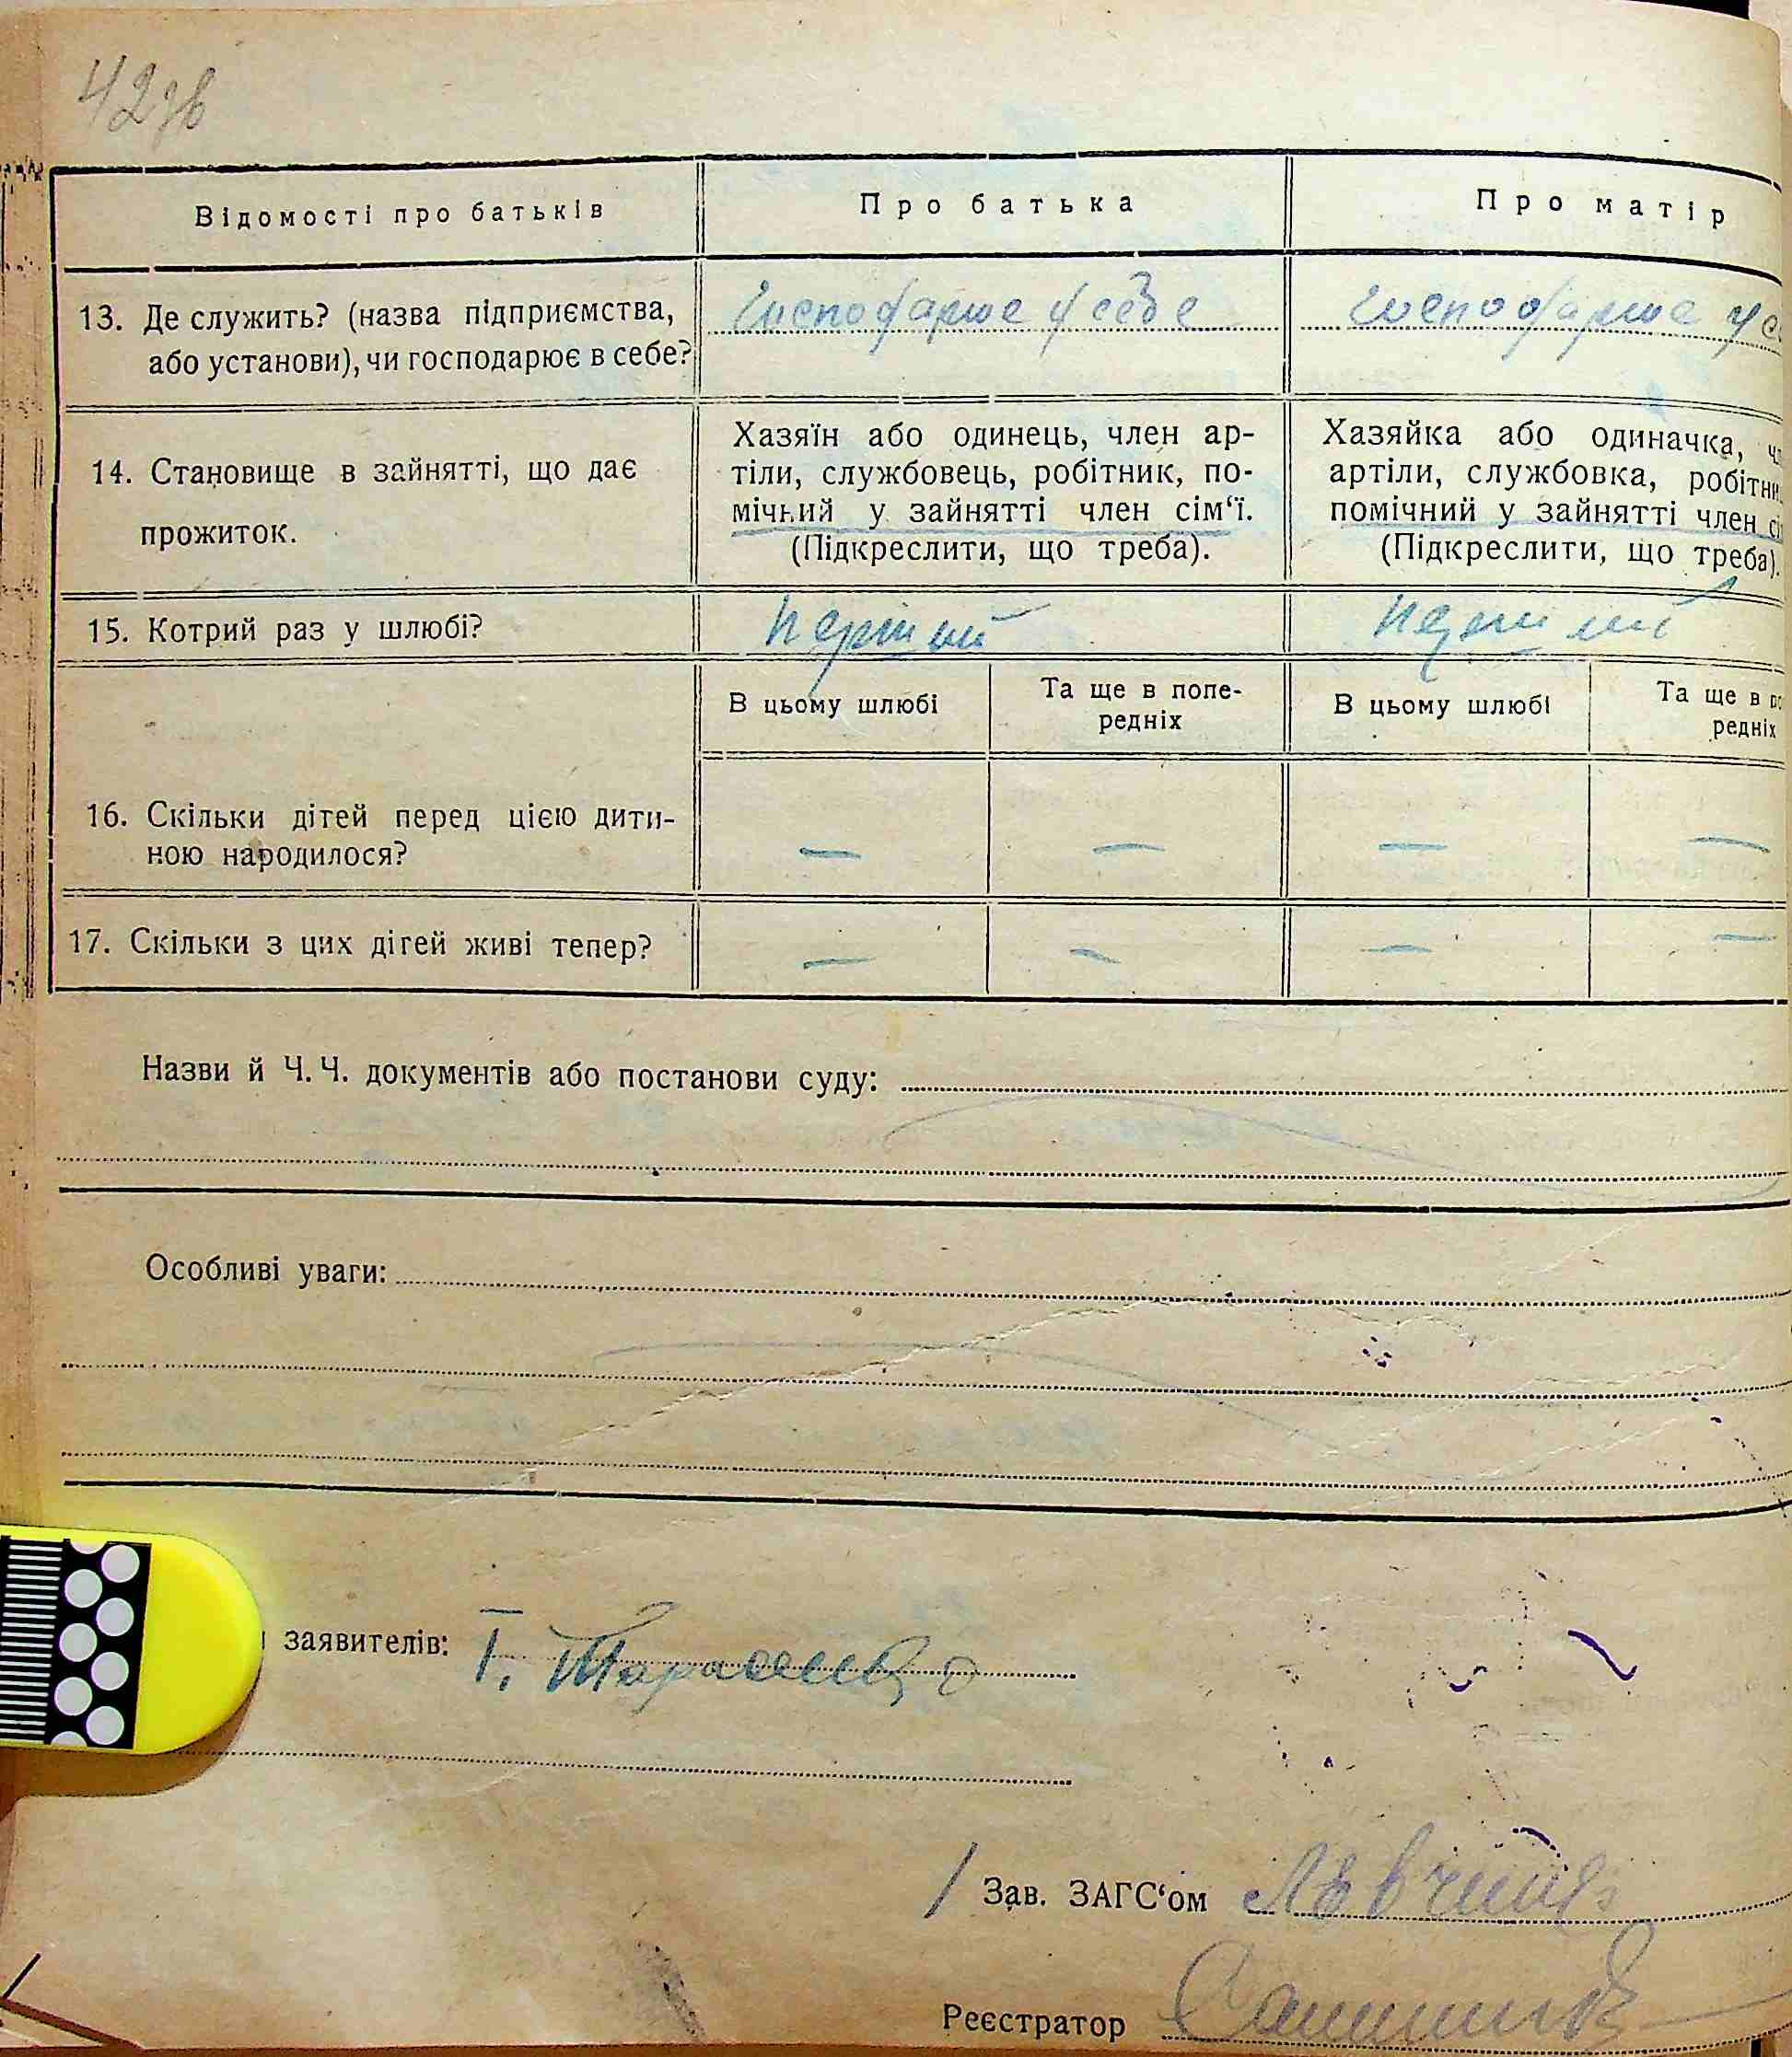 42зв
Відомості про батьків
Про батька
Про матір
13. Де служить? (назва підприємства,
або установи), чи господарює в себе?
Господарює у себе
Господарює у се
14. Становище в зайнятті, що дає
прожиток.
Хазяїн або одинець, член ар-
тіли, службовець, робітник, по-
мічний у зайнятті член сім‘ї.
(Підкреслити, що треба).
Хазяйка або одиначка, чл
артіли, службовка, робітни
помічний у зайнятті член сі
(Підкреслити, що треба).
15. Котрий раз у шлюбі?
перший
перший
В цьому шлюбі
Та ще в попе-
редніх
В цьому шлюбі
Та ще в по
редніх
16. Скільки дітей перед цією дити-
ною народилося?
— — — —
17. Скільки з цих дітей живі тепер?
— — — —
Назви й Ч. Ч. документів або постанови суду:
Особливі уваги:
заявителів: Г. Тарасенко
Зав. ЗАГС‘ом
Реєстратор